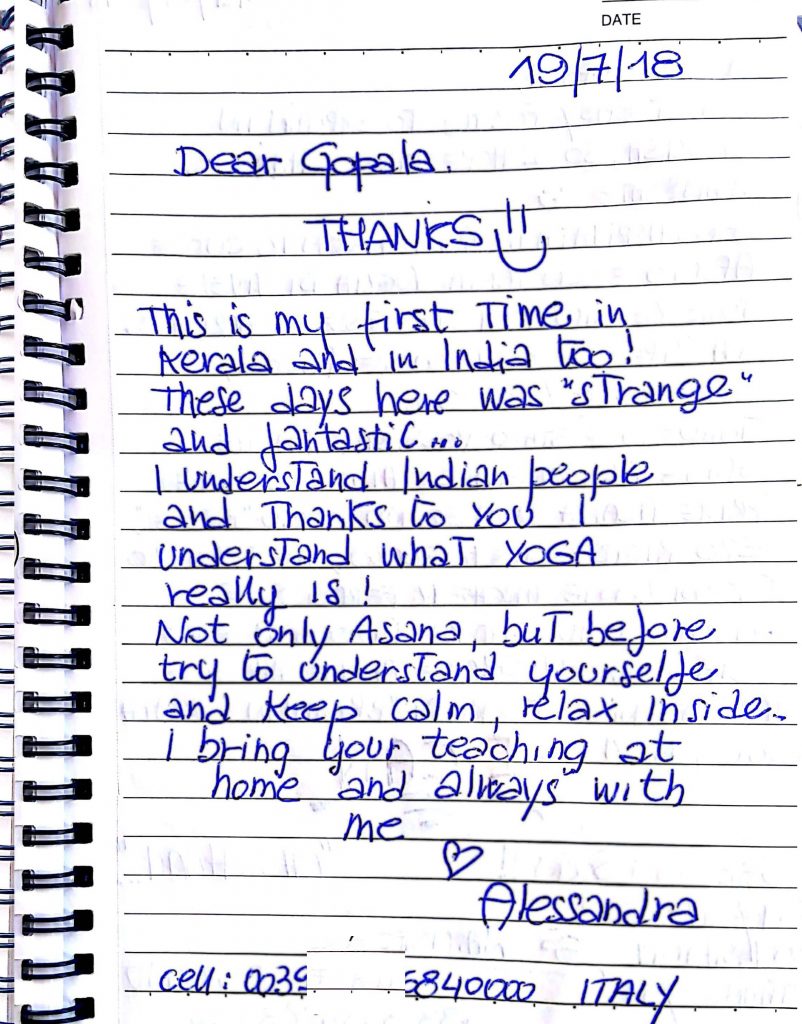 DATE
19/7/18
Dear Gopala.
THANKS
This is my first Time in
Kerala and in India too!
These days here was "sTrange"
and fantastic...
I undersTand Indian people
and Thanks to YOU I
undersTand whaT YOGA
really is!
Not only Asana, buT before
try to undersTand yourselfe
and keep calm, relax inside..
I bring your teaching at
home and always" with
me
Alessandra
cell: 0039 5840000 ITALY